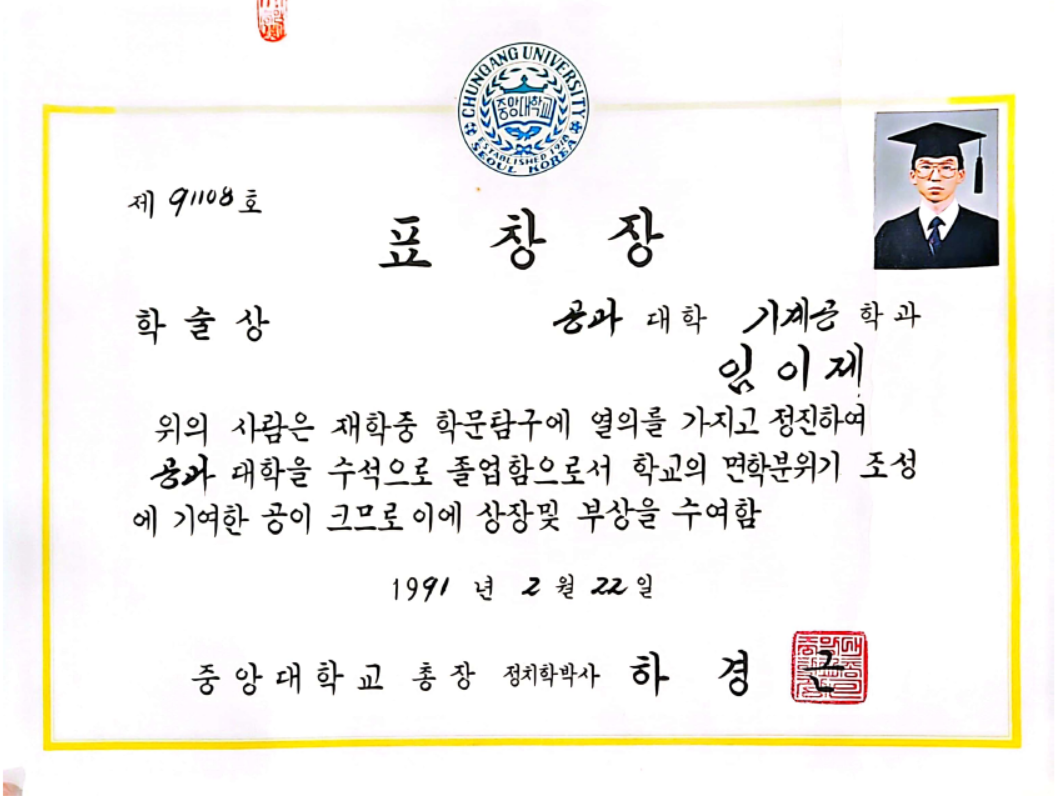 CHUNGANG UNIVERSITY
중앙대학교
ESTABLISHED 1918
SEOUL KOREA
제 91108 호
표창장
학술상
공과 대학 기계공 학과
임이재
위의 사람은 재학중 학문탐구에 열의를 가지고 정진하여
공과 대학을 수석으로 졸업함으로서 학교의 면학분위기 조성
에 기여한 공이 크므로 이에 상장및 부상을 수여함
1991 년 2 월 22 일
중앙대학교 총장 정치학박사 하경근